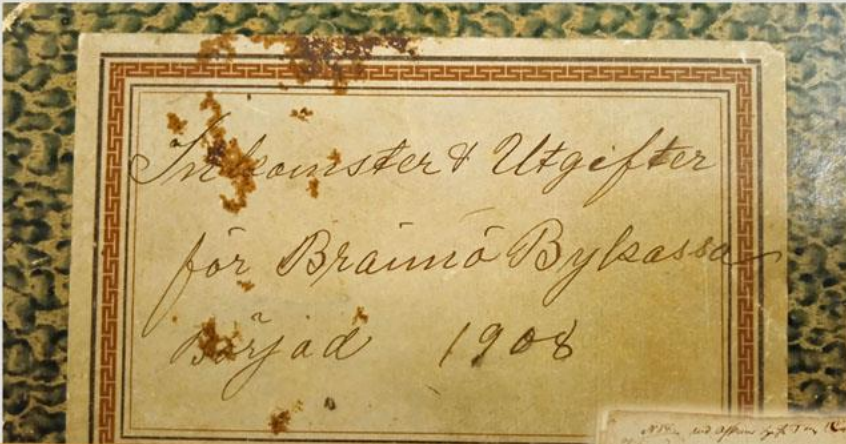 Inkomster & Utgifter
för Brännö Bykassa
Börjad 1908